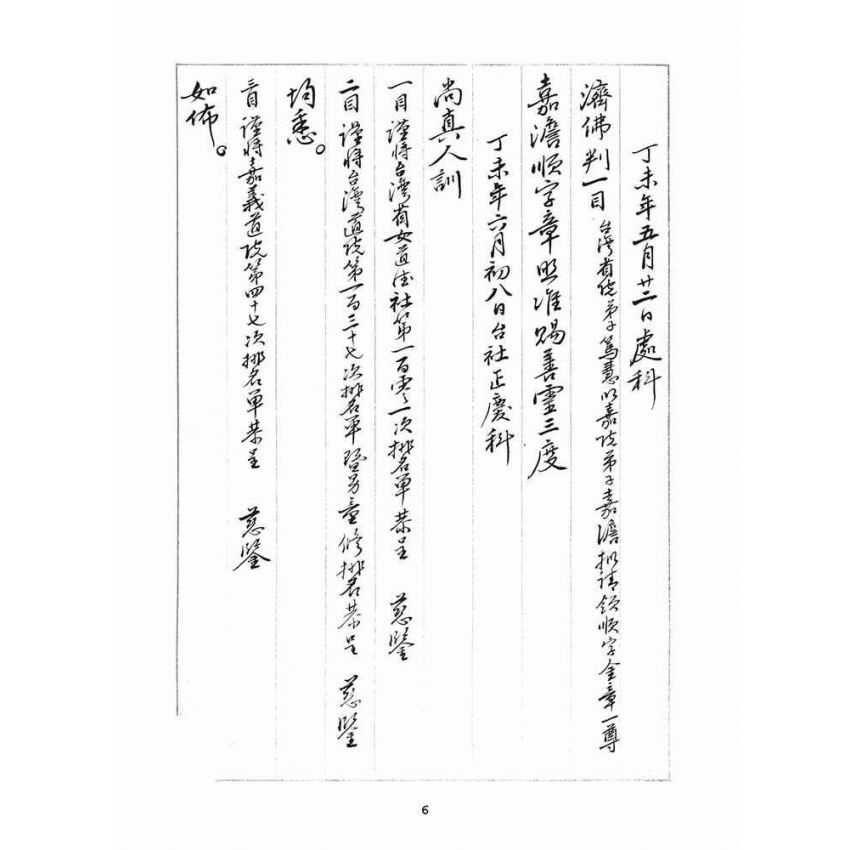 丁未年五月廿二日處科
濟佛判一目 台灣省院弟子篤慧以嘉院弟子嘉澹拟請領順字金章一尊
嘉澹順字章照准賜善靈三度
丁未年六月初八日台社正慶科
尚真人訓
一目 謹將台灣省女道德社第一百零一次排名單恭呈 慈鑒
二目 謹將台灣道院第一百三十七次排名單暨另童修排名恭呈 慈鑒
均悉。
三目 謹將嘉義道院第四十七次排名單恭呈 慈鑒
如佈。
6